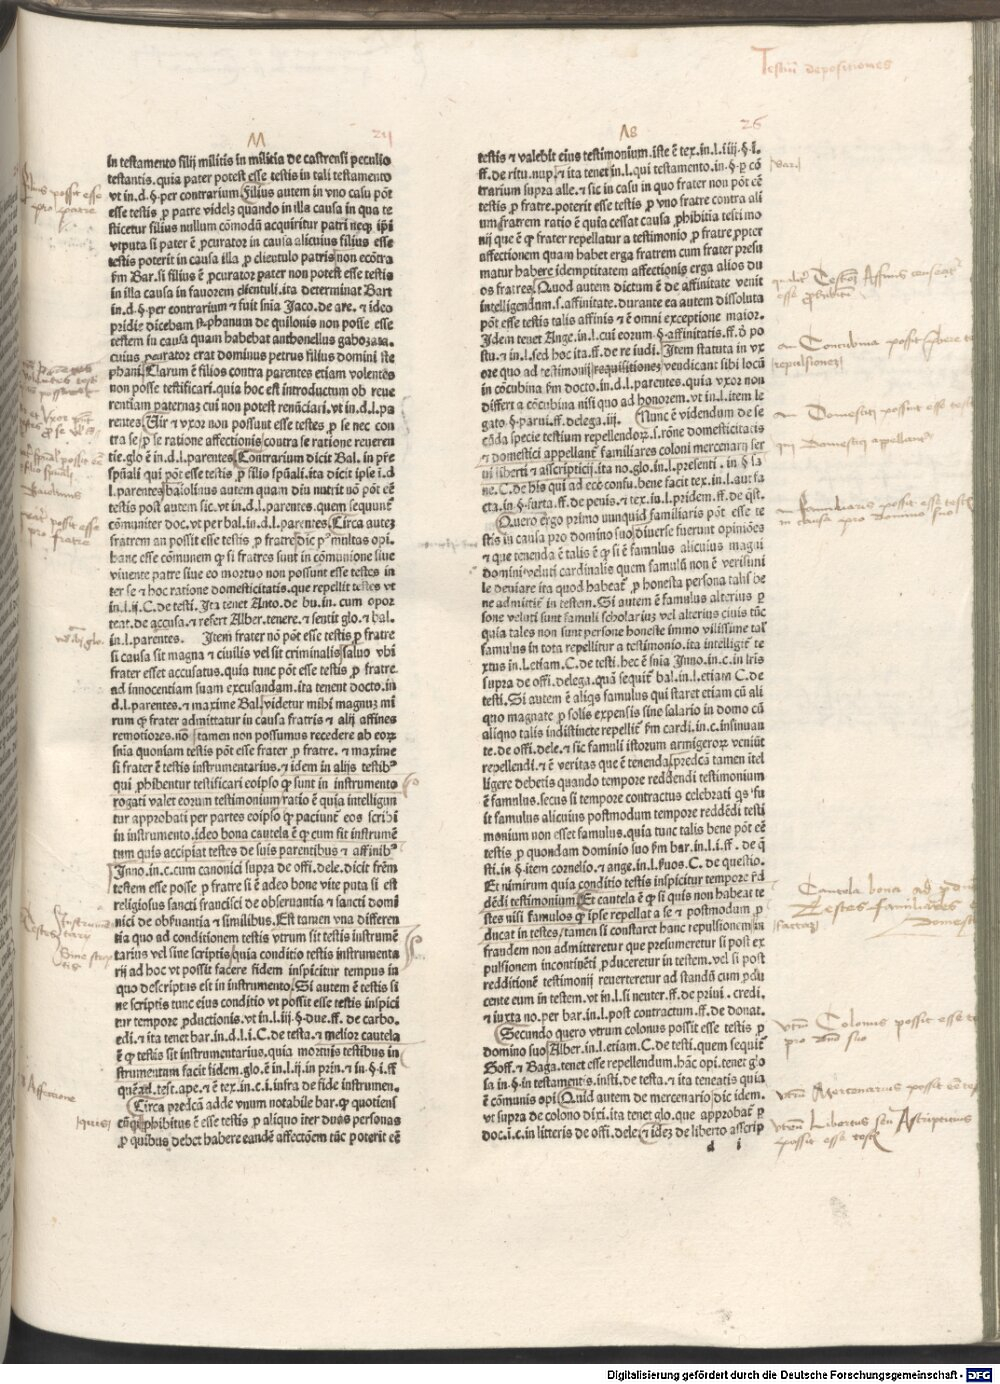 Testium depositiones
M
in testamento filij militis in militia de castrensi peculio
testantis.quia pater potest esse testis in tali testamento
vt in.d.§.per contrarium Filius autem in vno casu põt
esse testis ꝓ patre videlz quando in illa causa in qua te
sticetur filius nullum comodũ acquiritur patri necꝫ ip̃i
vtputa si pater ẽ ꝓcurator in causa alicuius filius esse
testis poterit in causa illa ꝓ clientulo patris non ecõtra
ẜm Bar.si filius ẽ ꝓcurator pater non potest esse testis
in illa causa in fauorem clientuli.ita determinat Bart
in.d.§.per contrarium ⁊ fuit snia Jaco.de are. ⁊ ideo
pridie dicebam stephanum de quilonis non posse esse
testem in causa quam habebat anthonellus gabozara.
cuius ꝓcurator erat dominus petrus filius domini ste
phani Clarum ẽ filios contra parentes etiam volentes
non posse testificari.quia hoc est introductum ob reue
rentiam paternaz cui non potest renũciari.vt in.d.l.pa
rentes Vir ⁊ vxor non possunt esse testes ꝓ se nec con
tra se ꝓ se ratione affectionis contra se ratione reueren
tie.glo ẽ in.d.l.parentes Contrarium dicit Bal. in pr̃e
spũali qui põt esse testis ꝓ filio spũali.ita dicit ipse i.d
l.parentes baiolinus autem quam diu nutrit nõ põt eẽ
testis post autem sic.vt in.d.l.parentes.quem sequunt̃
cõmuniter doc.vt per bal.in.d.l.parentes Circa autez
fratrem an possit esse testis ꝓ fratre dic pꝰ multas opi.
hanc esse cõmunem ꝙ si fratres sunt in comunione siue
viuente patre siue eo mortuo non possunt esse testes in
ter se ⁊ hoc ratione domesticitatis.que repellit testes vt
in.l.ij.C.de testi. Ita tenet Anto.de bu.in.cum opor
teat.de accusa.⁊ refert Alber.tenere.⁊ sentit glo.⁊ bal.
in.l.parentes. Item frater nõ põt esse testis ꝓ fratre
si causa sit magna ⁊ ciuilis vel sit criminalis saluo vbi
frater esset accusatus.quia tunc põt esse testis ꝓ fratre
ad innocentiam suam excusandam.ita tenent docto.in
d.l.parentes.⁊ maxime Bal videtur mihi magnuz mi
rum ꝙ frater admittatur in causa fratris ⁊ alij affines
remotiores.nõ tamen non possumus recedere ab eoꝝ
snĩa quoniam testis põt esse frater ꝓ fratre.⁊ maxime
si frater ẽ testis instrumentarius.⁊ idem in alijs testibꝰ
qui ꝓhibentur testificari eoipso ꝙ sunt in instrumento
rogati valet eorum testimonium ratio ẽ quia intelligun
tur approbati per partes eoipso ꝙ paciunt̃ eos scribi
in instrumento.ideo bona cautela ẽ ꝙ cum fit instrumẽ
tum quis accipiat testes de suis parentibus ⁊ affinibꝰ
Inno.in.c.cum canonici supra de offi.dele.dicit fr̃em
testem esse posse ꝓ fratre si ẽ adeo bone vite puta si est
religiosus sancti francisci de obseruantia ⁊ sancti domi
nici de obẜuantia ⁊ similibus.Est tamen vna differen
tia quo ad conditionem testis vtrum sit testis instrumẽ
tarius vel sine scriptis quia conditio testis instrumenta
rij ad hoc vt possit facere fidem inspicitur tempus in
quo descriptus est in instrumento.Si autem ẽ testis si
ne scriptis tunc eius conditio vt possit esse testis inspici
tur tempore ꝓductionis.vt in.l.iij.§.due.ff.de carbo.
edi.⁊ ita tenet bar.in.d.l.i.C.de testa.⁊ melior cautela
ẽ ꝙ testis sit instrumentarius.quia mortuis testibus in
strumentum facit fidem.glo.ẽ in.l.ij.in prin.⁊ in.§.i.ff
quẽad.test.ape.⁊ ẽ tex.in.c.i.infra de fide instrumen.
Circa predcã adde vnum notabile bar.ꝙ quotiens
cũqꝫ ꝓhibitus ẽ esse testis ꝓ aliquo iter duas personas
ꝓ quibus debet habere eandẽ affectõem tũc poterit eẽ
26
testis ⁊ valebit eius testimonium.iste ẽ tex.in.l.iiij.§.i.
ff.de ritu.nup. ⁊ ita tenet in.l.qui testamento.in §.ꝑ cõ
trarium supra alle.⁊ sic in casu in quo frater non põt eẽ
testis ꝓ fratre.poterit esse testis ꝓ vno fratre contra ali
um fratrem ratio ẽ quia cessat causa ꝓhibitia testimo
nij que ẽ ꝙ frater repellatur a testimonio ꝓ fratre ꝓpter
affectionem quam habet erga fratrem cum frater presu
matur habere idemptitatem affectionis erga alios du
os fratres Quod autem dictum ẽ de affinitate venit
intelligendum.s.affinitate.durante ea autem dissoluta
põt esse testis talis affinis ⁊ ẽ omni exceptione maior.
Idem tenet Ange.in.l.cui eorum.§.affinitatis.ff.ð po
stu.⁊ in.l.sed hoc ita.ff.de re iudi. Item statuta in vx
ore quo ad testimonij requisitiones vendicant sibi locũ
in cõcubina ẜm docto.in.d.l.parentes.quia vxor non
differt a cõcubina nisi quo ad honorem.vt in.l.item le
gato.§.parui.ff.delega.iij. Nunc ẽ videndum de se
cũda specie testium repellendoꝝ.s.rõne domesticitatis
⁊ domestici appellant̃ familiares coloni mercenarij ser
ui liberti ⁊ asscripticij.ita no.glo.in.l.presenti.in §.sa
ne.C.de his qui ad ecc̃ confu.bene facit tex.in.l.aut fa
cta.in.§.furta.ff.de penis.⁊ tex.in.l.pridem.ff.de q̃st.
Quero ergo primo nunquid familiaris põt esse te
stis in causa pro domino suo diuerse fuerunt opiniões
⁊ que tenenda ẽ talis ẽ ꝙ si ẽ famulus alicuius magni
domini veluti cardinalis quem famulũ non ẽ verisimi
le deuiare ita quod habeat̃ ꝓ honesta persona talis be
ne admittit̃ in testem.Si autem ẽ famulus alterius ꝑ
sone veluti sunt famuli scholariuz vel alterius ciuis tũc
quia tales non sunt persone honeste immo vilissime tal̃
famulus in tota repellitur a testimonio.ita intelligit̃ te
xtus in.l.etiam.C.de testi.hec ẽ snia Inno.in.c.in lr̃is
supra de offi.delega.quã sequit̃ bal.in.l.etiam C.de
testi.Si autem ẽ aliqs famulus qui staret etiam cũ ali
quo magnate ꝓ solis expensis sine salario in domo cũ
aliquo talis indistincte repellit̃ ẜm cardi.in.c.insinuan
te.de offi.dele.⁊ sic famuli istorum armigeroꝝ veniũt
repellendi.⁊ ẽ veritas que ẽ tenenda predcã tamen ĩtel
ligere debetis quando tempore reddendi testimonium
ẽ famulus.secus si tempore contractus celebrati qs fu
it famulus alicuius postmodum tempore reddẽdi testi
monium non esset famulus.quia tunc talis bene põt eẽ
testis ꝓ quondam dominio suo ẜm bar.in.l.i.ff.de q̃
sti.in §.item cornelio.⁊ ange.in.l.ẜuos.C.de questio.
Et nimirum quia conditio testis inspicitur tempore red
dẽdi testimonium Et cautela ẽ ꝙ si quis non habeat te
stes nisi famulos ꝙ ipse repellat a se ⁊ postmodum ꝓ
ducat in testes tamen si constaret hanc repulsionem in
fraudem non admitteretur que presumeretur si post ex
pulsionem incontinẽti ꝓduceretur in testem.vel si post
redditionẽ testimonij reuerteretur ad standũ cum ꝓdu
cente eum in testem.vt in.l.si neuter.ff.de priui.credi.
⁊ iuxta no.per bar.in.l.post contractum.ff.de donat.
Secundo quero vtrum colonus possit esse testis ꝓ
domino suo Alber.in.l.etiam.C.de testi.quem sequit̃
Soff.⁊ Baga.tenet esse repellendum.hãc opi.tenet glo
sa in.§.in testamentis.insti.de testa.⁊ ita teneatis quia
ẽ cõmunis opi Quid autem de mercenario dic idem.
vt supra de colono dixi.ita tenet glo.que approbat̃ ꝓ
doc.i.c.in litteris de offi.dele ⁊ idez de liberto asscrip
d i
pro patre
possit esse
pro fratre
an Concubina possit
repulsionez
an Domestici possunt esse testes
qui Domestici appellant̃
an Familiaris possit esse testis
in causa pro domino suo
Cautela bona ad
Testes familiares
vtrũ Colonus possit esse te
pro dño suo
vtrũ Mercenarius possit eẽ te
vtrũ Libertus seu Ascripticius
possit esse testis
Digitalisierung gefördert durch die Deutsche Forschungsgemeinschaft - DFG